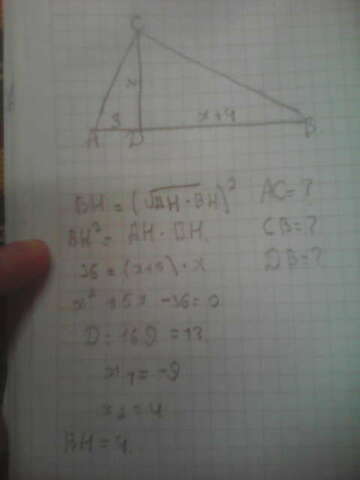 C
x
3
x+4
A D B
BH = (√AH · BH)²
AC = ?
BH² = AH · BH
CB = ?
36 = (x+5) · x
DB = ?
x² + 5x - 36 = 0
D = 169 = 13
x₁ = -9
x₂ = 4
BH = 4